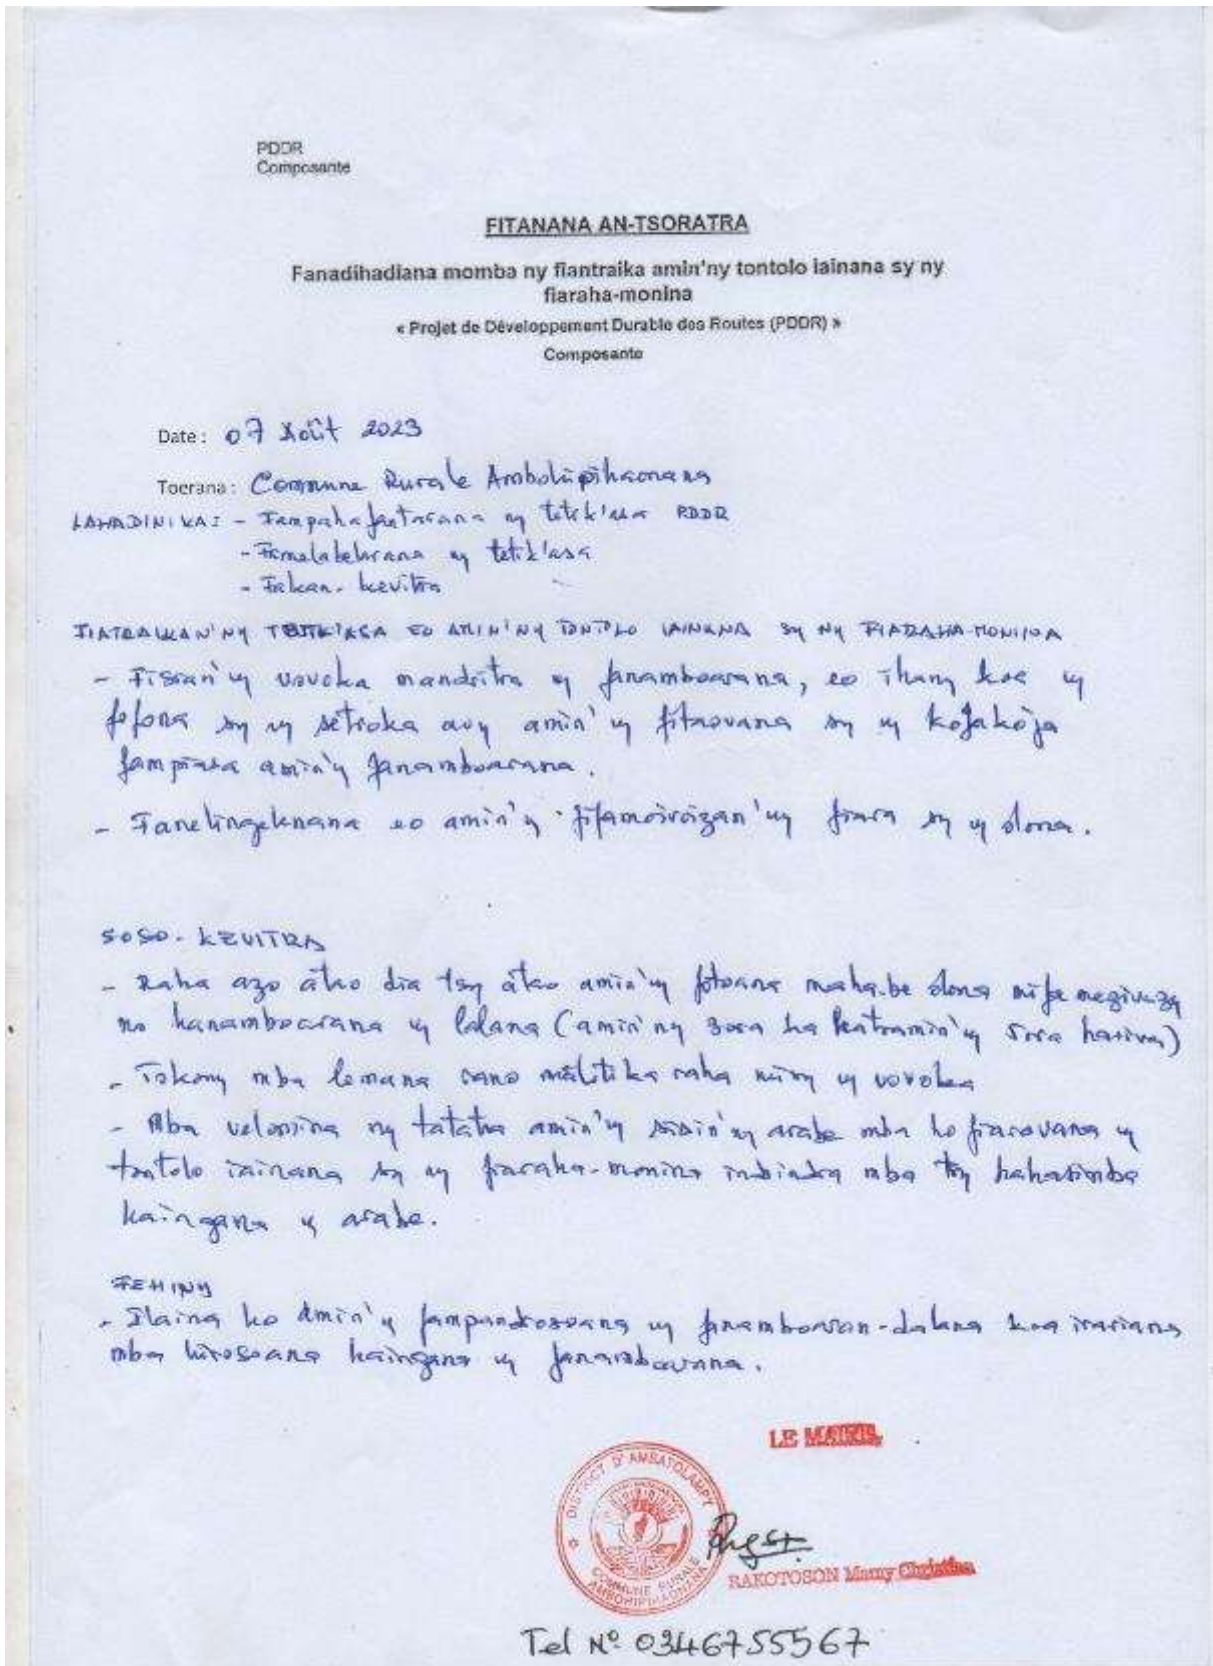 PDDR
Composante
FITANANA AN-TSORATRA
Fanadihadiana momba ny fiantraika amin'ny tontolo iainana sy ny
fiaraha-monina
« Projet de Développement Durable des Routes (PDDR) »
Composante
Date : 07 Août 2023
Toerana : Commune Rurale Ambohipihaonana
LAHADINIKA : - Fampahafantarana ny tetik'asa PDDR
- Famelabelarana ny tetik'asa
- Fakan-kevitra
FIATRAIKAN'NY TETIK'ASA EO AMIN'NY TONTOLO IAINANA SY NY FIARAHA-MONINA
- Fisian'ny vovoka mandritra ny fanamboarana, eo ihany koa ny
fofona sy ny setroka avy amin'ny fitaovana sy ny kojakoja
fampiasa amin'ny fanamboarana.
- Fanelingelenana eo amin'ny fifamoivoizan'ny fiara sy ny olona.
SOSO-KEVITRA
- Raha azo atao dia tsy atao amin'ny fotoana maha-be olona mifamezivezy
no hanamboarana ny lalana (amin'ny 3ora ka hatramin'ny 5ora hariva)
- Tokony mba lemana rano matitika raha misy ny vovoka
- Mba velomina ny tatatra amin'ny sisin'ny arabe mba ho fiarovana ny
tontolo iainana sy ny fiaraha-monina indrindra mba tsy hahasimba
haingana ny arabe.
FEHINY
- Ilaina ho amin'ny fampandrosoana ny fanamboaran-dalana koa irariana
mba hirosoana haingana ny fanamboarana.
LE MAIRE,
DISTRICT D'AMBATOLAMPY
COMMUNE RURALE
AMBOHIPIHAONANA
RAKOTOSON Mamy Christina
Tel N° 0346755567